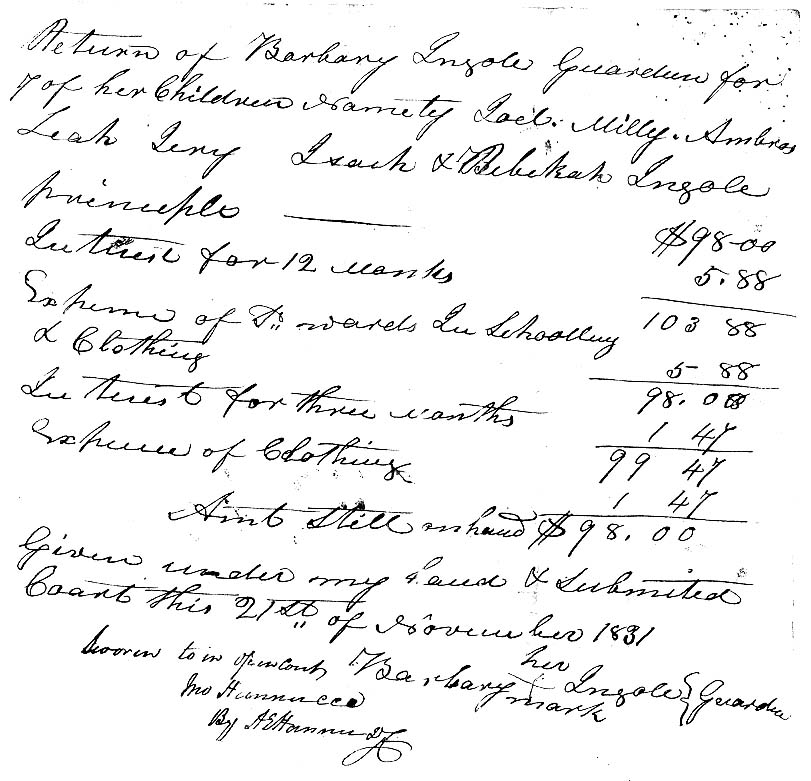 Return of Barbary Ingole Guarden for
7 of her Children Namely Joel. Milly. Ambros
Leah Jery Isach & Rebekah Ingole
principle $98.00
Interest for 12 Months 5.88
Expense of Do wards In Schoolling 103 88
& Clothing 5 88
98.00
Interest for three Months 1 47
Expense of Clothing 99 47
1 47
Amt Still inhand $98.00
Given under my hand & Submited
Coart this 21st of November 1831
Sworen to in open court Barbary her Ingole Guarden
mark
By